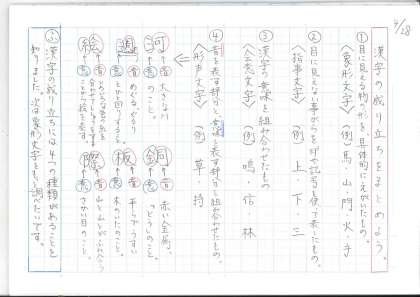 4/28
漢字の成り立ちをまとめよう。
①目に見える物の形を、具体的にえがいたもの。
〈象形文字〉〈例〉馬・山・門・火・手
②目に見えない事がらを印や記号を使って表したもの。
〈指事文字〉〈例〉上・下・三
③漢字の意味を組み合わせたもの
〈会意文字〉〈例〉鳴・信・林
④音を表す部分と意味を表す部分を組み合わせたもの。
〈形声文字〉〈例〉草・持
河
音
意
大きな川
のこと。
銅
音
意
赤い金属、
「どう」のこと。
週
音
意
めぐる、やく
板
音
意
平らでうすい
木のいたのこと。
絵
音
意
際
音
意
山と山とが
さかい目のこと。
㋫漢字の成り立ちには4つの種類があることを
知りました。次は象形文字をもっと調べたいです。